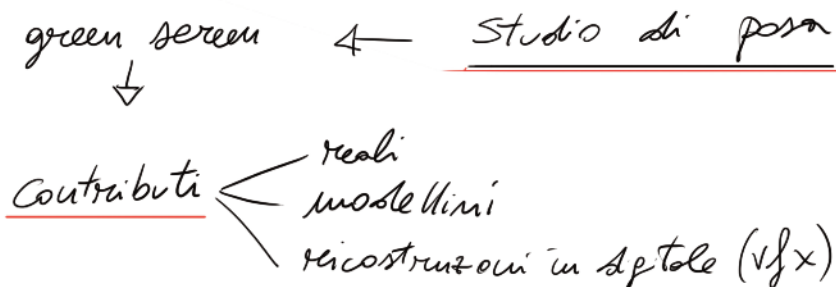 green screen ← studio di posa
contributi
reali
modellini
ricostruzioni in digitale (vfx)